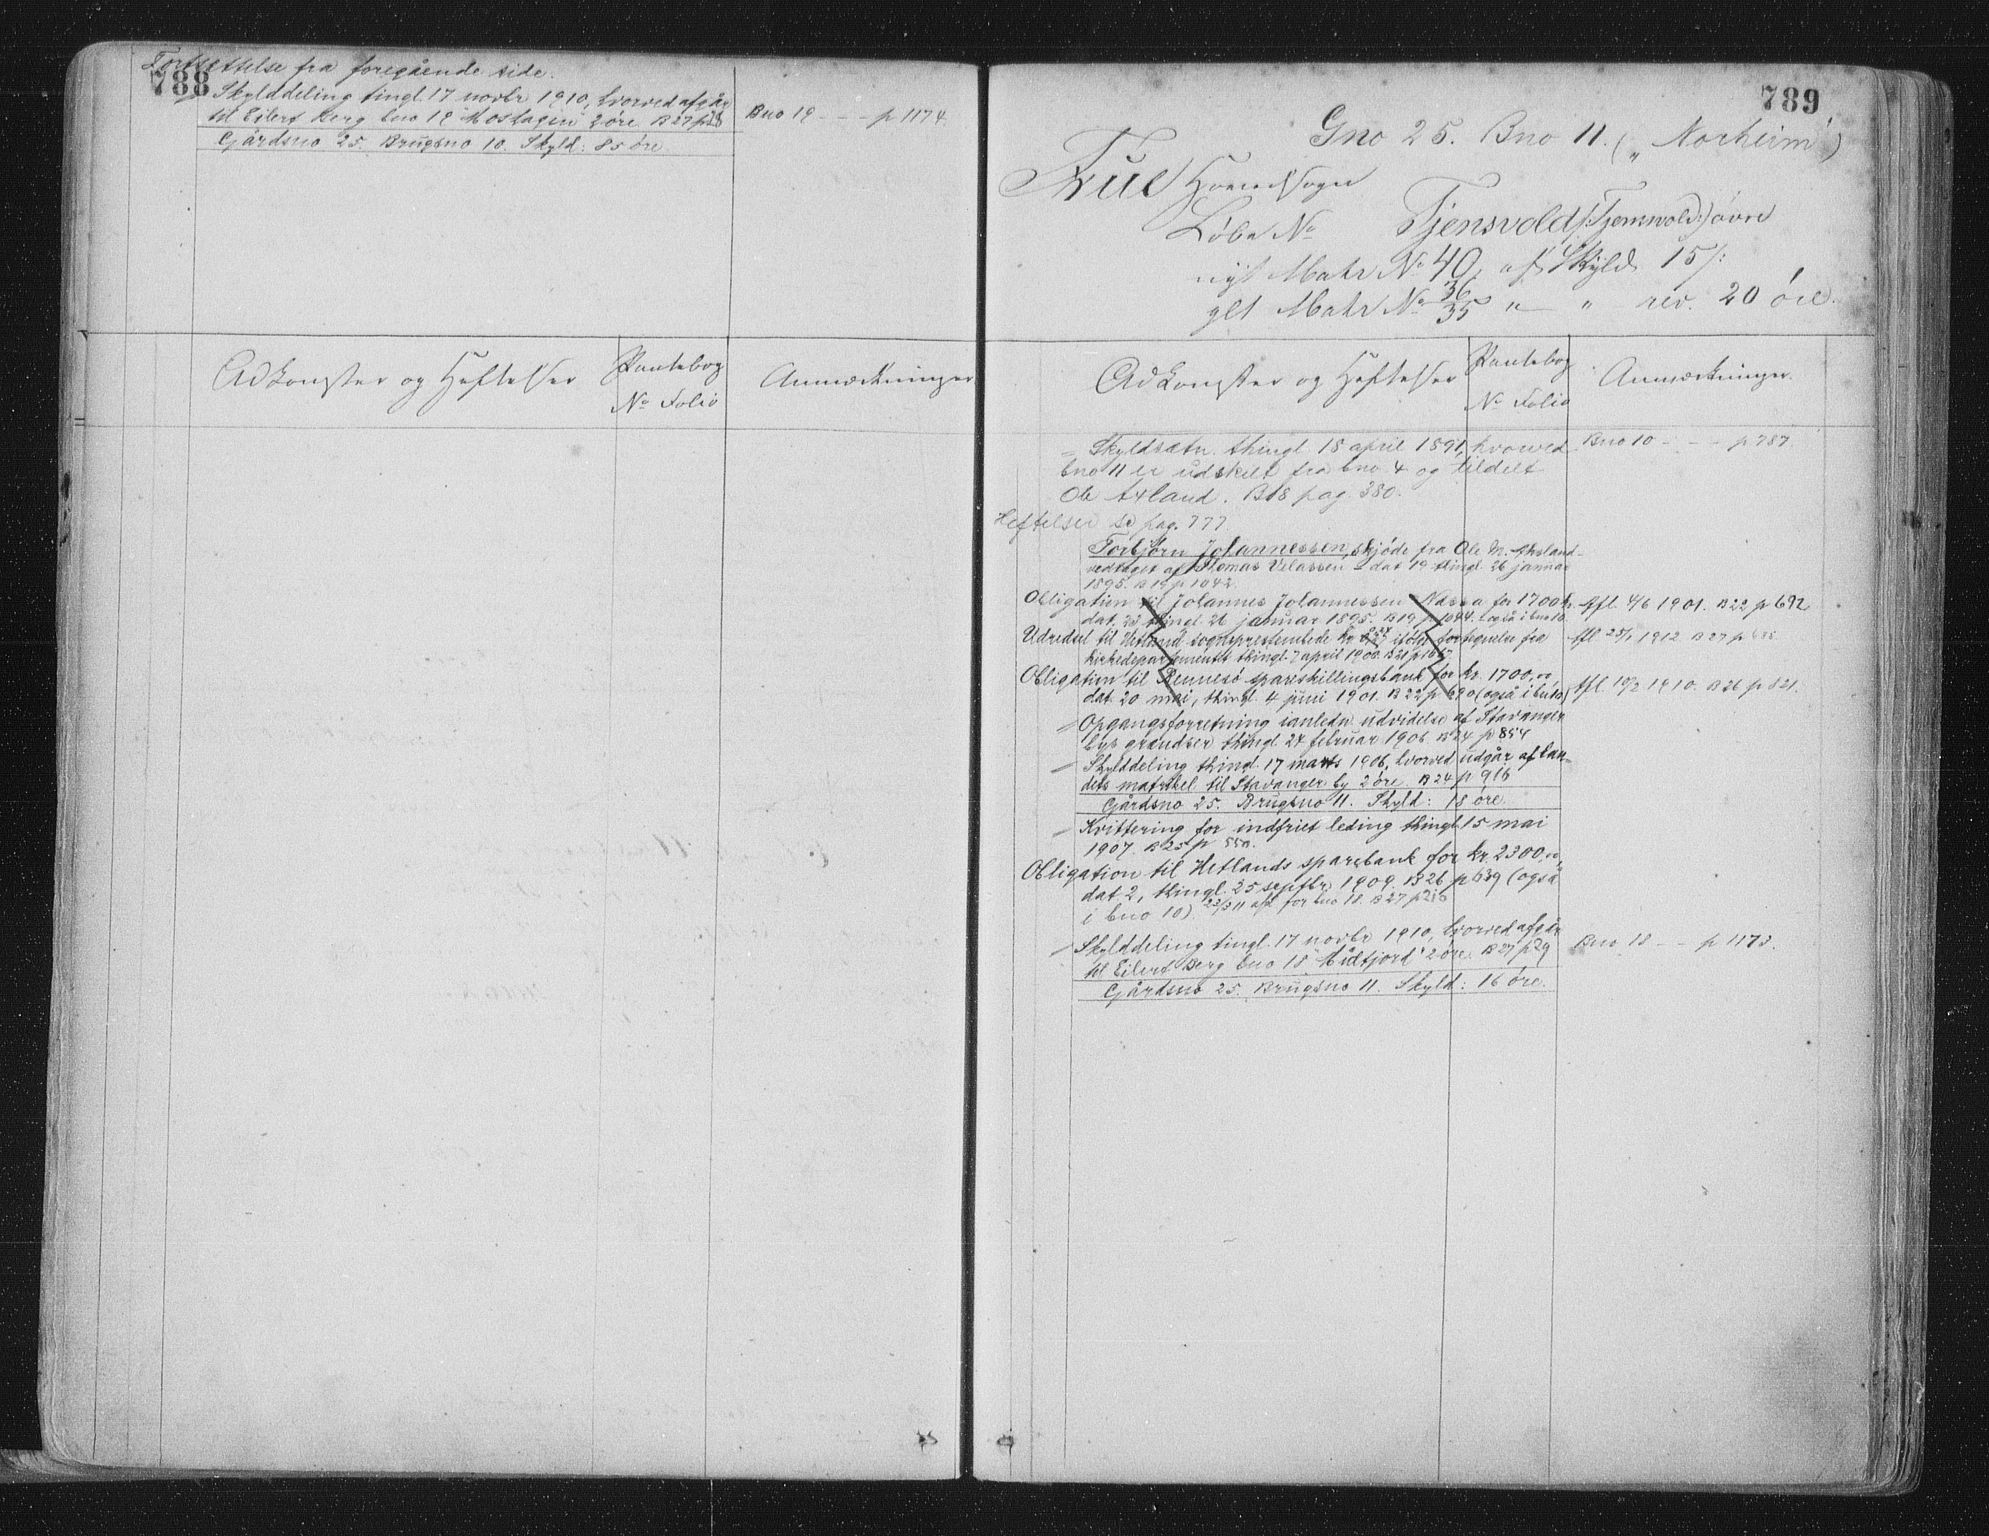 788
Fortsettelse fra foregående side.
Skylddeling tingl. 17 novbr 1910, hvorved afgår
til Eilert Berg bno 19 2 øre B 27 p 28
Bno 19 - - - p 1174.
Gårdsno 25. Brugsno 10. Skyld: 85 øre
Adkomster og Heftelser
Pantebog
No Folio
Anmærkninger
789
Gno 25. Bno 11. („Norheim")
Frue Hovedsogn
Løbe No Tjensvold (: Tjemsvold:) øvre
nyt Matr No 40, af Skyld 15/:
36
glt Matr No 35 " " rev. 20 øre.
Adkomster og Heftelser
Pantebog
No Folio
Anmærkninger.
Skyldsætn. thingl 18 april 1891, hvorved
Bno 10 - - - p 787
bno 11 er udskilt fra bno 4 og tildelt
Ole Axland. B 18 pag. 380.
Heftelser se pag. 777.
Torbjørn Johannessen, skjøde fra Ole M.
vedtaget af Thomas dat 19 thingl. 26 januar
1895. B 19 p 1042.
Obligation til Johannes Johannessen Nassa for 1700 kr.
Afl. 4/6 1901. B 22 p 692
dat. 23 thingl 26 januar 1895. B 19 p 1044. også i bno 10.
Udredsel til Hetland sogneprestembede kr ifølge fortegnelse fra
Afl 25/1 1912 B 27 p
kirkedepartementet thingl. 7 april 1900. B 21 p
Obligation til Rennesø spareskillingsbank for kr. 1700,00,
Afl. 10/2 1910. B 26 p 821.
dat. 20 mai, thingl. 4 juni 1901. B 22 p 690 (også i bno 10)
Opgangsforretning i anledn. udvidelse af Stavanger
bys grændser thingl. 24 februar 1906. B 24 p 854
Skylddeling thingl. 17 marts 1906, hvorved udgår af lan-
dets matrikel til Stavanger by 2 øre. B 24 p 916
Gårdsno 25. Brugsno 11. Skyld: 18 øre.
Kvittering for indfriet leding thingl. 15 mai
1907. B 25 p 550.
Obligation til Hetlands sparebank for kr. 2300,00,
dat 2, thingl. 25 septbr. 1909. B 26 p 639 (også
i bno 10). 22/3 11 afl for bno 18. B 27 p 216
Skylddeling tingl. 17 novbr 1910, hvorved afgår
Bno 18 - - p 1173.
til Eilert Berg bno 18 "Midtjord" 2 øre. B 27 p 29
Gårdsno 25. Brugsno 11. Skyld: 16 øre.